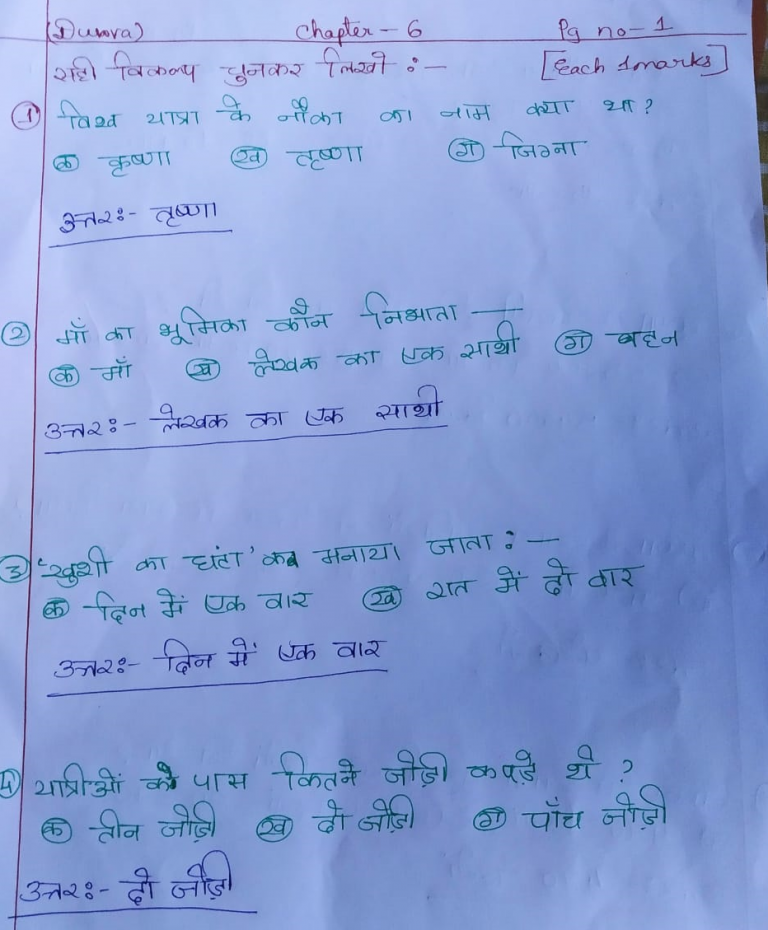 (Durva) Chapter - 6 Pg no - 1
सही विकल्प चुनकर लिखो :- [Each 1marks]
① विश्व यात्रा के नौका का नाम क्या था?
क कृष्णा ख तृष्णा ग जिग्ना
उत्तर:- तृष्णा
② माँ का भूमिका कौन निभाता —
क माँ ख लेखक का एक साथी ग बहन
उत्तर:- लेखक का एक साथी
③ 'खुशी का घंटा' कब मनाया जाता :-
क दिन में एक वार ख रात में दो वार
उत्तर:- दिन में एक वार
④ यात्रीओं के पास कितने जोड़ी कपड़े थे ?
क तीन जोड़ी ख दो जोड़ी ग पाँच जोड़ी
उत्तर:- दो जोड़ी